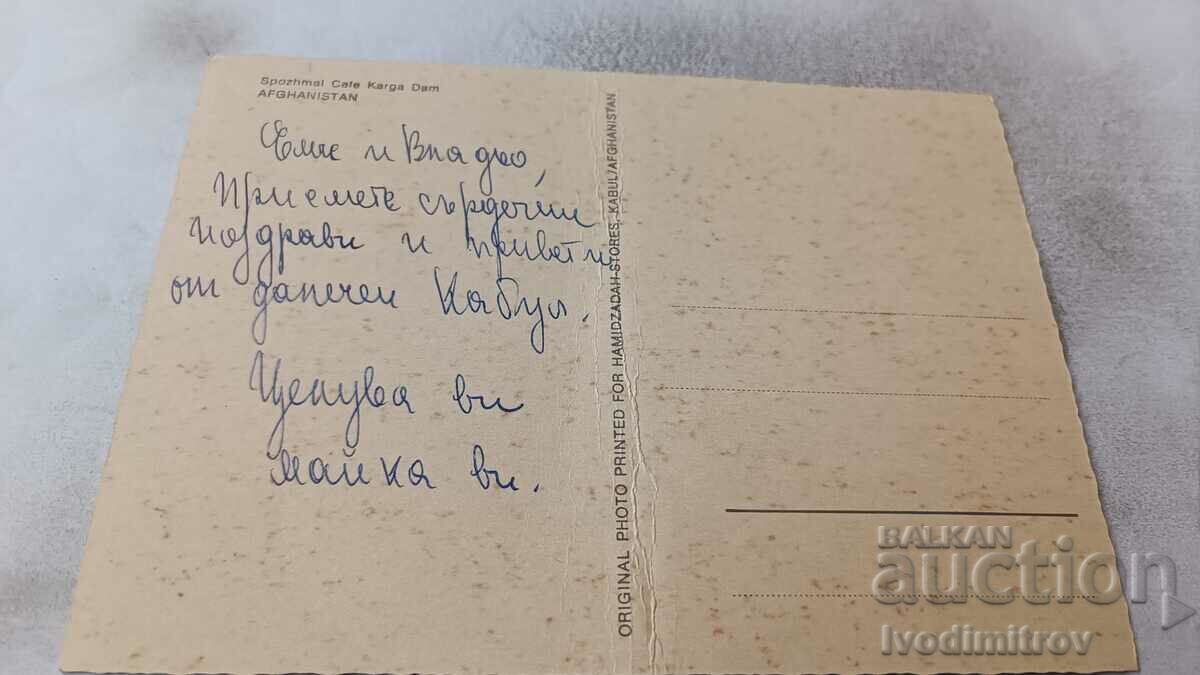 Spozhmai Cafe Karga Dam
AFGHANISTAN
Еми и Владьо,
Приемете сърдечни
поздрави и привети
от далечен Кабул.
Целува ви
майка ви.
ORIGINAL PHOTO PRINTED FOR HAMIDZADAH-STORES, KABUL/AFGHANISTAN
BALKAN
auction
Ivodimitrov